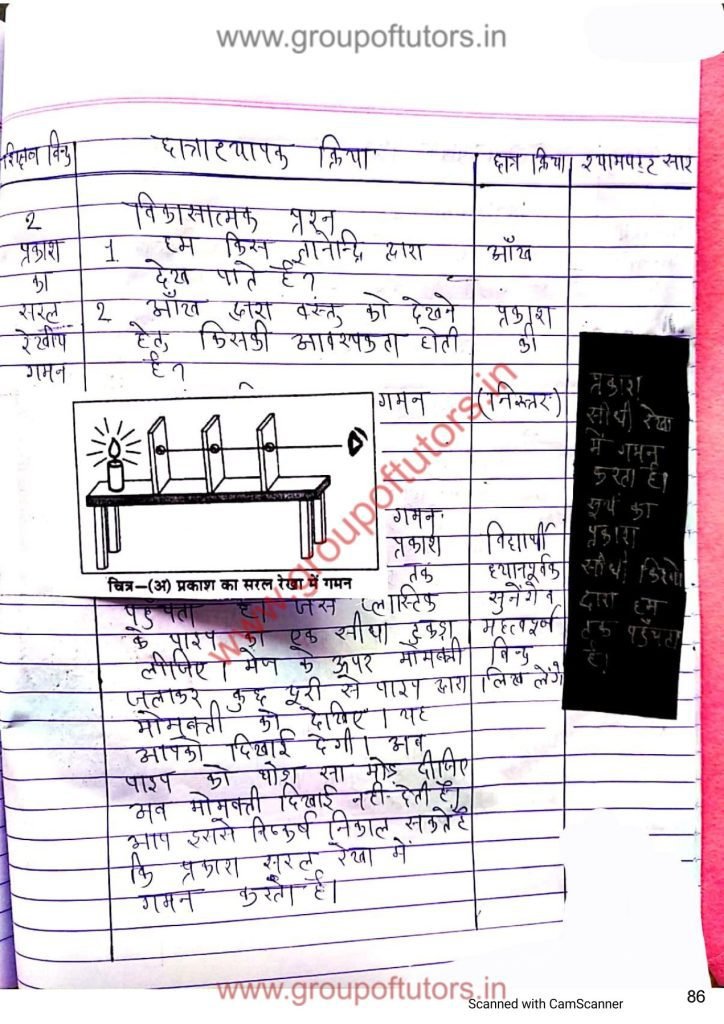 www.groupoftutors.in
शिक्षण बिन्दु छात्राध्यापक क्रिया छात्र क्रिया श्यामपट्ट सार
2 विकासात्मक प्रश्न
प्रकाश 1. हम किस ज्ञानेन्द्रि द्वारा आँख
का देख पाते हैं?
सरल 2 आँख द्वारा वस्तु को देखने प्रकाश
रेखीय हेतु किसकी आवश्यकता होती की
गमन है?
गमन (निरुत्तर)
गमन
प्रकाश विद्यार्थी
तक ध्यानपूर्वक
चित्र–(अ) प्रकाश का सरल रेखा में गमन
पहुंचता है। प्लास्टिक सुनेंगे व
के पाइप का एक सीधा टुकड़ा महत्वपूर्ण
लीजिए। मेज के ऊपर मोमबत्ती बिन्दु
जलाकर कुछ दूरी से पाइप द्वारा लिख लेंगे
मोमबत्ती को देखिए। यह
आपको दिखाई देगी। अब
पाइप को थोड़ा सा मोड़ दीजिए
अब मोमबत्ती दिखाई नही देती है,
आप इससे निष्कर्ष निकाल सकते है
कि प्रकाश सरल रेखा में
गमन करता है।
प्रकाश
सीधी रेखा
में गमन
करता है।
सूर्य का
प्रकाश
सीधी किरणों
द्वारा हम
तक पहुँचता
है।
www.groupoftutors.in
www.groupoftutors.in
Scanned with CamScanner
86